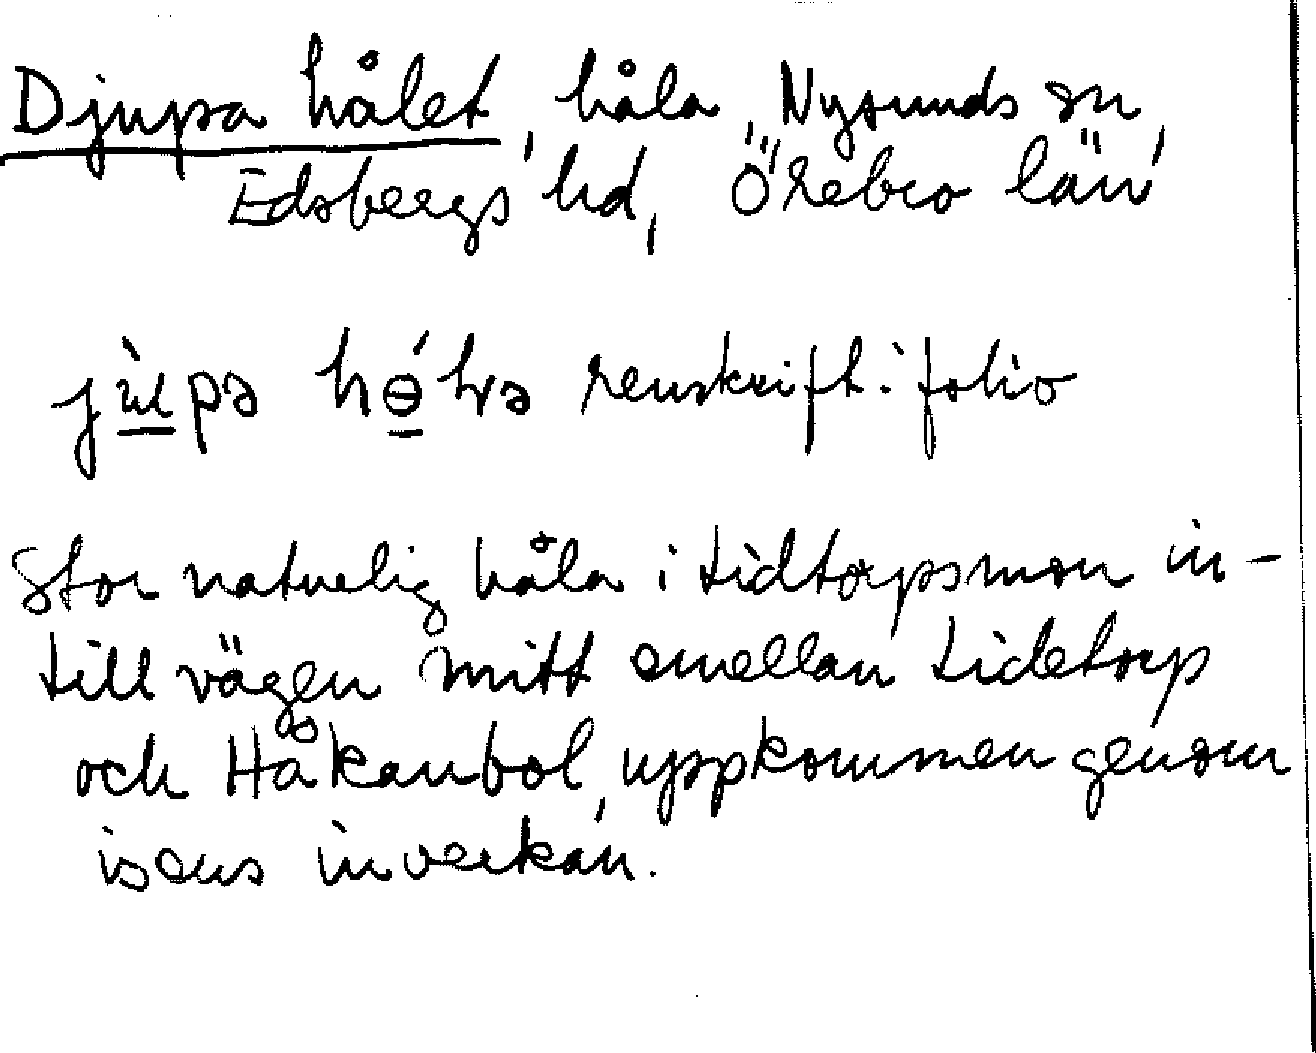 Djupa hålet, håla, Nysunds sn,
Edsbergs hd, Örebro län
renskrift i folio
Stor naturlig håla i tidtorpsmon in-
till vägen mitt emellan tidetorp
och Håkanbol, uppkommen genom
isens inverkan.